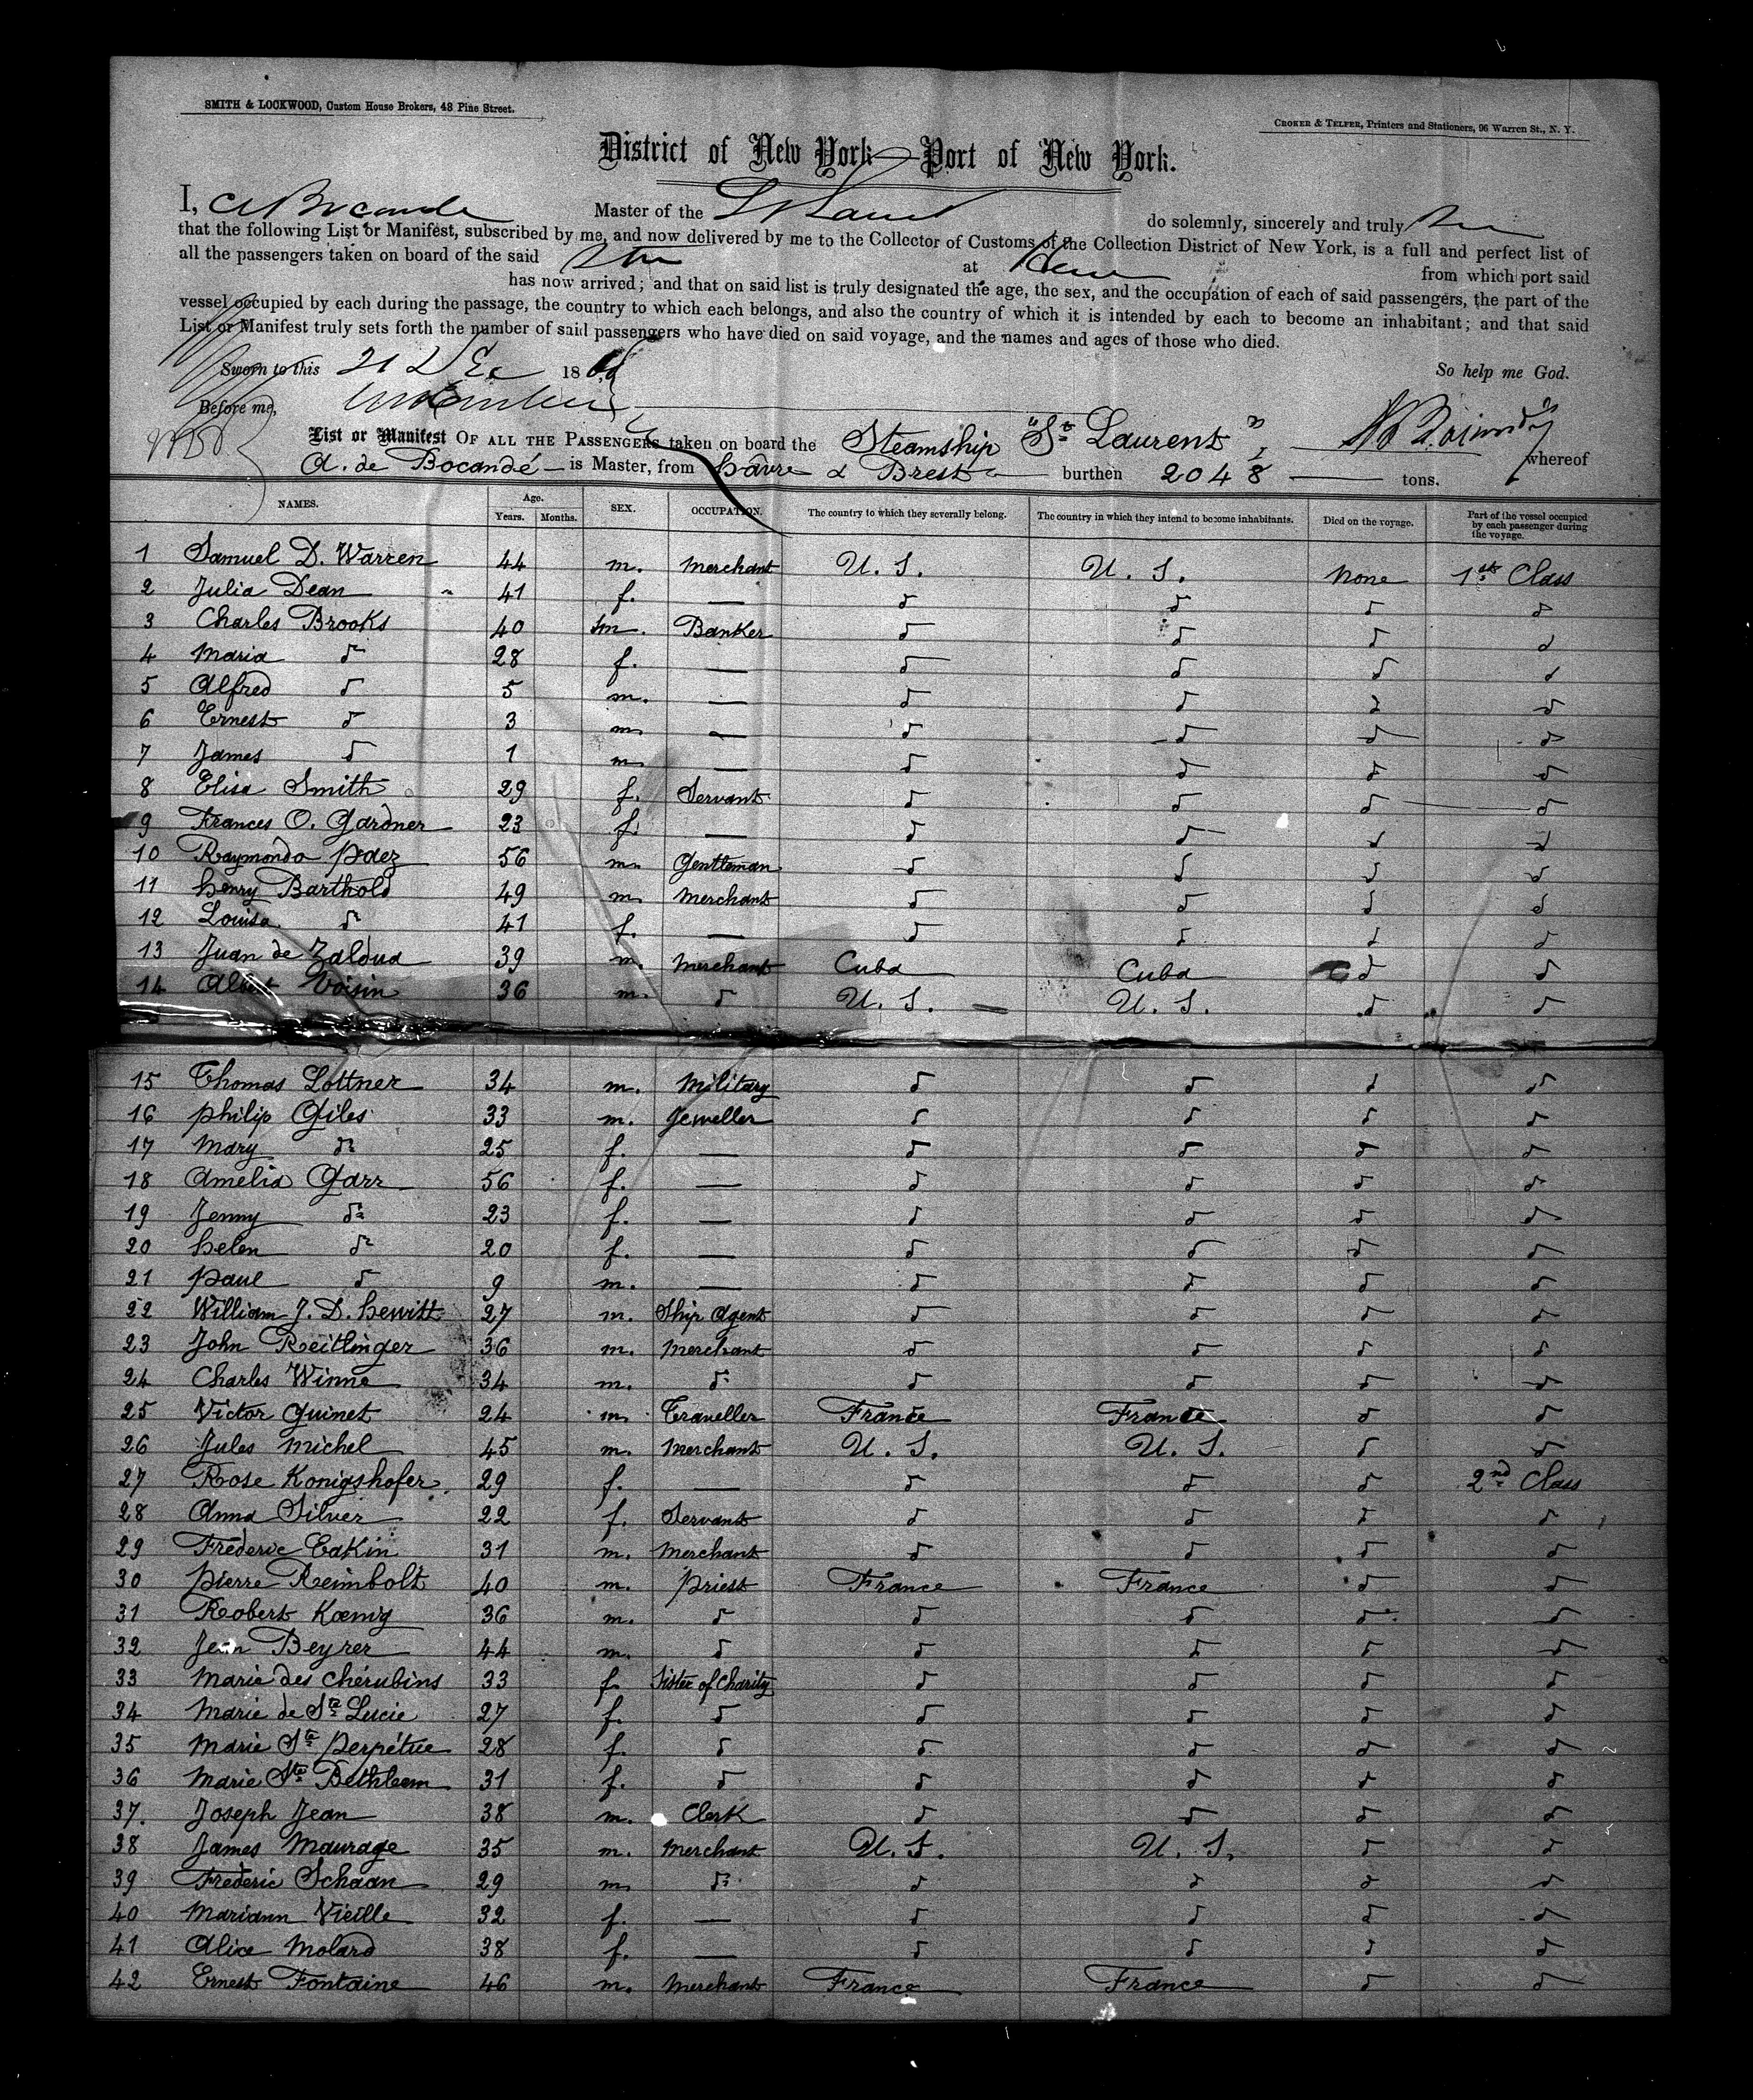 SMITH & LOCKWOOD, Custom House Brokers, 48 Pine Street.
CROKER & TELFER, Printers and Stationers, 96 Warren St., N. Y.
District of New York—Port of New York.
I, A Bocandé Master of the St Laurent do solemnly, sincerely and truly
that the following List or Manifest, subscribed by me, and now delivered by me to the Collector of Customs of the Collection District of New York, is a full and perfect list of
all the passengers taken on board of the said at Havre from which port said
has now arrived; and that on said list is truly designated the age, the sex, and the occupation of each of said passengers, the part of the
vessel occupied by each during the passage, the country to which each belongs, and also the country of which it is intended by each to become an inhabitant; and that said
List or Manifest truly sets forth the number of said passengers who have died on said voyage, and the names and ages of those who died.
Sworn to this 21 Dec 18 So help me God.
Before me,
List or Manifest OF ALL THE PASSENGERS taken on board the Steamship "St Laurent", whereof
A. de Bocandé is Master, from Hâvre & Brest burthen 2048 tons.
NAMES. Age. Years. Months. SEX. OCCUPATION. The country to which they severally belong. The country in which they intend to become inhabitants. Died on the voyage. Part of the vessel occupied by each passenger during the voyage.
1 Samuel D. Warren 44 m. Merchant U. S. U. S. None 1st Class
2 Julia Dean 41 f. — d d d d
3 Charles Brooks 40 m. Banker d d d d
4 Maria do 28 f. — d d d d
5 Alfred d 5 m. — d d d d
6 Ernest d 3 m. — d d d d
7 James d 1 m. — d d d d
8 Elisa Smith 29 f. Servant d d d d
9 Frances O. Gardner 23 f. — d d d d
10 Raymondo Paez 56 m. Gentleman d d d d
11 Henry Barthold 49 m. Merchant d d d d
12 Louisa do 41 f. — d d d d
13 Juan de Zaldua 39 m. Merchant Cuba Cuba d d
14 Albert Voisin 36 m. d U. S. U. S. d d
15 Thomas Lottner 34 m. Military d d d d
16 Philip Giles 33 m. Jeweller d d d d
17 Mary do 25 f. — d d d d
18 Amelia Garr 56 f. — d d d d
19 Jenny do 23 f. — d d d d
20 Helen do 20 f. — d d d d
21 Paul d 9 m. — d d d d
22 William J. D. Hewitt 27 m. Ship Agent d d d d
23 John Reitlinger 36 m. Merchant d d d d
24 Charles Winne 34 m. do d d d d
25 Victor Guinet 24 m. Traveller France France d d
26 Jules Michel 45 m. Merchant U. S. U. S. d d
27 Rose Konigshofer 29 f. — d d d 2nd Class
28 Anna Silver 22 f. Servant d d d d
29 Frederic Eakin 31 m. Merchant d d d d
30 Pierre Reimbolt 40 m. Priest France France d d
31 Robert Kœnig 36 m. d d d d d
32 Jean Beyrer 44 m. d d d d d
33 Marie des Chérubins 33 f. Sister of Charity d d d d
34 Marie de Ste Lucie 27 f. d d d d d
35 Marie Ste Perpétue 28 f. d d d d d
36 Marie Ste Bethleem 31 f. d d d d d
37. Joseph Jean 38 m. Clerk d d d d
38 James Maurage 35 m. Merchant U. S. U. S. d d
39 Frederic Schaan 29 m. do d d d d
40 Mariann Vieille 32 f. — d d d d
41 Alice Molard 38 f. — d d d d
42 Ernest Fontaine 46 m. Merchant France France d d